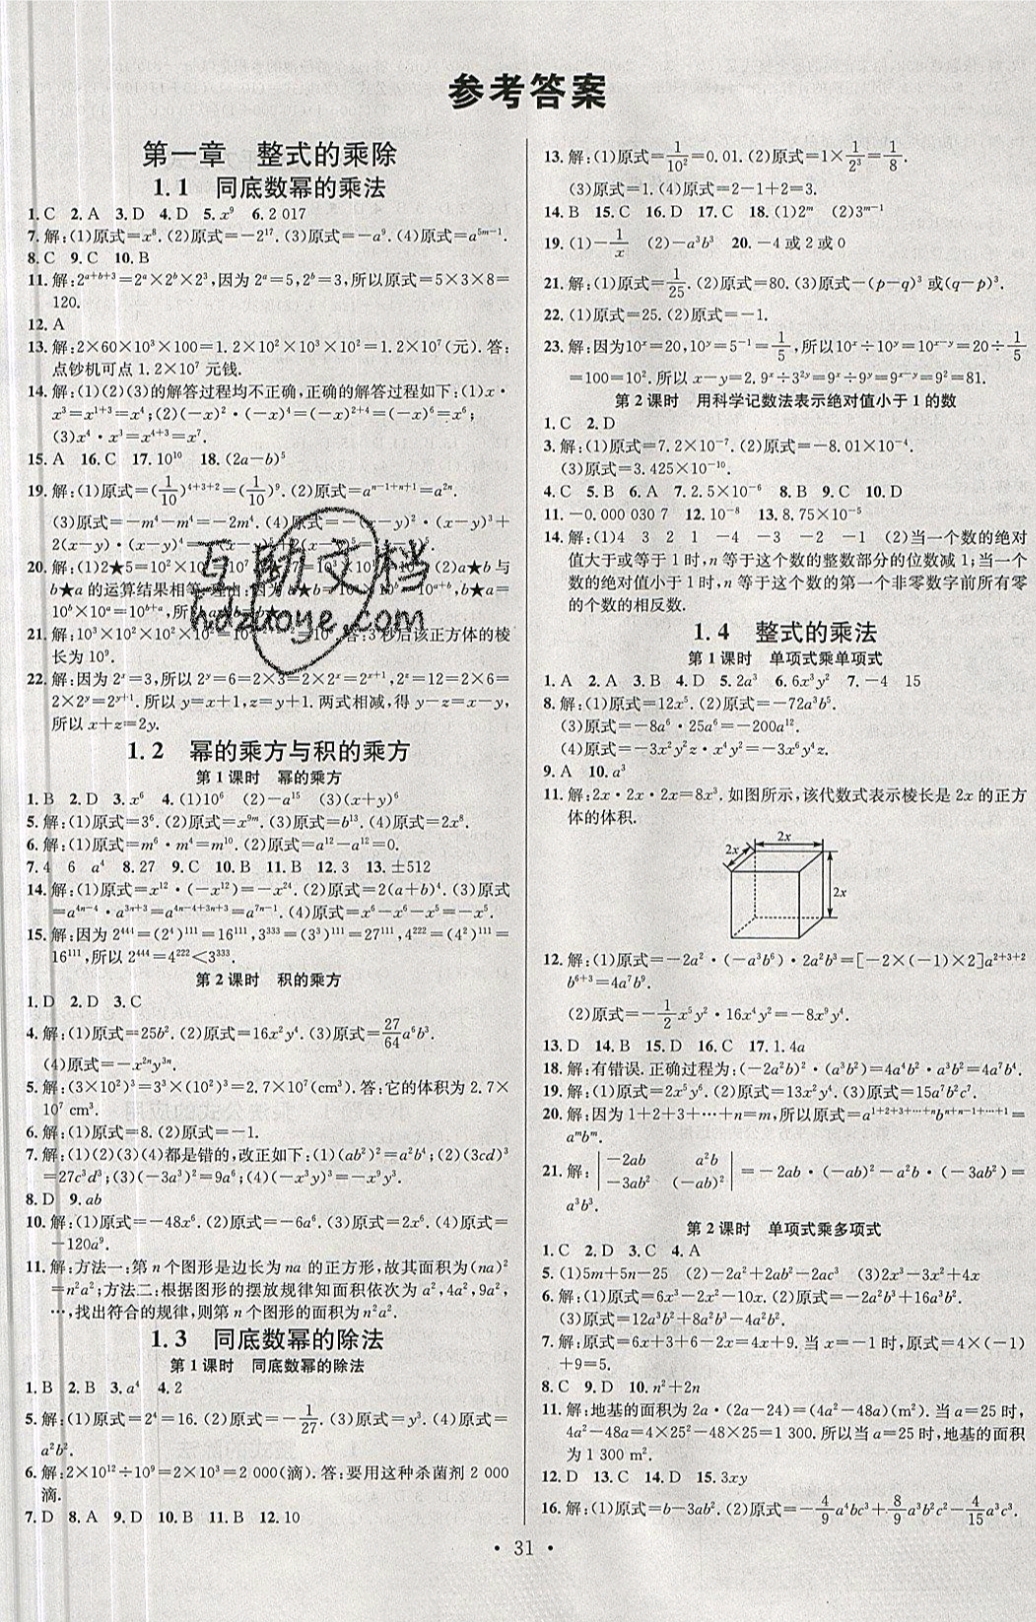 参考答案
第一章　整式的乘除
1.1　同底数幂的乘法
1.C　2.A　3.D　4.D　5.x⁹　6.2 017
7.解:(1)原式=x⁸.(2)原式=-2¹⁷.(3)原式=-a⁹.(4)原式=a⁵ᵐ⁻¹.
8.C　9.C　10.B
11.解:2ᵃ⁺ᵇ⁺³=2ᵃ×2ᵇ×2³,因为2ᵃ=5,2ᵇ=3,所以原式=5×3×8=
120.
12.A
13.解:2×60×10³×100=1.2×10²×10³×10²=1.2×10⁷(元).答:
点钞机可点1.2×10⁷元钱.
14.解:(1)(2)(3)的解答过程均不正确,正确的解答过程如下:(1)x·
x³=x¹⁺³=x⁴;(2)(-x)²·(-x)⁴=(-x)²⁺⁴=(-x)⁶=x⁶;
(3)x⁴·x³=x⁴⁺³=x⁷.
15.A　16.C　17.10¹⁰　18.(2a-b)⁵
19.解:(1)原式=(1/10)⁴⁺³⁺²=(1/10)⁹.(2)原式=aⁿ⁻¹⁺ⁿ⁺¹=a²ⁿ.
(3)原式=-m⁴-m⁴=-2m⁴.(4)原式=-(x-y)²·(x-y)³+
2(x-y)·(x-y)
20.解:(1)2★5=10²×10⁵=10⁷ (2)a★b与
b★a的运算结果相等,理由:因为a★b=10 ,b★a=
10ᵇ×10ᵃ=10ᵇ⁺ᵃ,所以a★b=
21.解:10³×10²×10²×10²=10⁹.答:3秒后该正方体的棱
长为10⁹.
22.解:因为2ˣ=3,所以2ʸ=6=2×3=2×2ˣ=2ˣ⁺¹,2ᶻ=12=2×6=
2×2ʸ=2ʸ⁺¹.所以y=x+1,z=y+1.两式相减,得y-z=x-y,
所以x+z=2y.
1.2　幂的乘方与积的乘方
第1课时　幂的乘方
1.B　2.D　3.x⁶　4.(1)10⁶　(2)-a¹⁵　(3)(x+y)⁶
5.解:(1)原式=3⁶.(2)原式=x⁹ᵐ.(3)原式=b¹³.(4)原式=2x⁸.
6.解:(1)原式=m⁶·m⁴=m¹⁰.(2)原式=a¹²-a¹²=0.
7.4　6　a⁴　8.27　9.C　10.B　11.B　12.3　13.±512
14.解:(1)原式=x¹²·(-x¹²)=-x²⁴.(2)原式=2(a+b)⁴.(3)原式
=a⁴ⁿ⁻⁴·a³ⁿ⁺³=a⁴ⁿ⁻⁴⁺³ⁿ⁺³=a⁷ⁿ⁻¹.(4)原式=x⁶-x⁶-x⁵=-x⁵.
15.解:因为2⁴⁴⁴=(2⁴)¹¹¹=16¹¹¹,3³³³=(3³)¹¹¹=27¹¹¹,4²²²=(4²)¹¹¹=
16¹¹¹,所以2⁴⁴⁴=4²²²<3³³³.
第2课时　积的乘方
1.D　2.D　3.C
4.解:(1)原式=25b².(2)原式=16x²y⁴.(3)原式=27/64 a⁶b³.
(4)原式=-x²ⁿy³ⁿ.
5.解:(3×10²)³=3³×(10²)³=2.7×10⁷(cm³).答:它的体积为2.7×
10⁷ cm³.
6.解:(1)原式=8.(2)原式=-1.
7.解:(1)(2)(3)(4)都是错的,改正如下:(1)(ab²)²=a²b⁴;(2)(3cd)³
=27c³d³;(3)(-3a³)²=9a⁶;(4)(-x³y)³=-x⁹y³.
8.D　9.ab
10.解:(1)原式=-48x⁶.(2)原式=-6a⁶.(3)原式=2x⁶.(4)原式=
-120a⁹.
11.解:方法一:第n个图形是边长为na的正方形,故其面积为(na)²
=n²a²;方法二:根据图形的摆放规律知面积依次为a²,4a²,9a²,
…,找出符合的规律,则第n个图形的面积为n²a².
1.3　同底数幂的除法
第1课时　同底数幂的除法
1.B　2.B　3.a⁴　4.2
5.解:(1)原式=2⁴=16.(2)原式=-1/27.(3)原式=y³.(4)原式=
a²b².
6.解:2×10¹²÷10⁹=2×10³=2 000(滴).答:要用这种杀菌剂2 000
滴.
7.D　8.A　9.D　10.B　11.B　12.10
13.解:(1)原式=1/10²=0.01.(2)原式=1×1/2³=1/8.
(3)原式=1.(4)原式=2-1+2=3.
14.B　15.C　16.D　17.C　18.(1)2ᵐ　(2)3ᵐ⁻¹
19.(1)-1/x　(2)-a³b³　20.-4或2或0
21.解:(1)原式=1/25.(2)原式=80.(3)原式=-(p-q)³或(q-p)³.
22.(1)原式=25.(2)原式=-1.
23.解:因为10ˣ=20,10ʸ=5⁻¹=1/5,所以10ˣ÷10ʸ=10ˣ⁻ʸ=20÷1/5
=100=10².所以x-y=2.9ˣ÷3²ʸ=9ˣ÷9ʸ=9ˣ⁻ʸ=9²=81.
第2课时　用科学记数法表示绝对值小于1的数
1.C　2.D
3.解:(1)原式=7.2×10⁻⁷.(2)原式=-8.01×10⁻⁴.
(3)原式=3.425×10⁻¹⁰.
4.C　5.B　6.A　7.2.5×10⁻⁶　8.B　9.C　10.D
11.-0.000 030 7　12.10⁻⁸　13.8.75×10⁻⁵
14.解:(1)4　3　2　1　-4　-3　-2　-1　(2)当一个数的绝对
值大于或等于1时,n等于这个数的整数部分的位数减1;当一个
数的绝对值小于1时,n等于这个数的第一个非零数字前所有零
的个数的相反数.
1.4　整式的乘法
第1课时　单项式乘单项式
1.A　2.A　3.B　4.D　5.2a³　6.6x³y²　7.-4　15
8.解:(1)原式=12x⁵.(2)原式=-72a³b⁵.
(3)原式=-8a⁶·25a⁶=-200a¹².
(4)原式=-3x²y²z·x⁴y²=-3x⁶y⁴z.
9.A　10.a³
11.解:2x·2x·2x=8x³.如图所示,该代数式表示棱长是2x的正方
体的体积.
2x
2x
2x
12.解:(1)原式=-2a²·(-a³b⁶)·2a²b³=[-2×(-1)×2]a²⁺³⁺²
b⁶⁺³=4a⁷b⁹.
(2)原式=-1/2x⁵y²·16x⁴y²=-8x⁹y⁴.
13.D　14.B　15.D　16.C　17.1.4a
18.解:有错误.正确过程为:(-2a²b)²·(a³b²)=4a⁴b²·a³b²=4a⁷b⁴.
19.解:(1)原式=2x⁵y⁶.(2)原式=13x²y⁴.(3)原式=15a⁷b²c⁷.
20.解:因为1+2+3+…+n=m,所以原式=a¹⁺²⁺³⁺…⁺ⁿbⁿ⁺ⁿ⁻¹⁺…⁺¹=
aᵐbᵐ.
21.解:|-2ab　a²b; -3ab²　(-ab)²|=-2ab·(-ab)²-a²b·(-3ab²)=
a³b³.
第2课时　单项式乘多项式
1.C　2.D　3.C　4.A
5.(1)5m+5n-25　(2)-2a²+2ab²-2ac³　(3)2x³-3x²+4x
6.解:(1)原式=6x³-2x²-10x.(2)原式=-2a²b³+16a³b².
(3)原式=12a³b²+8a³b³-4a²b².
7.解:原式=6x+3+6-2x=4x+9.当x=-1时,原式=4×(-1)
+9=5.
8.C　9.D　10.n²+2n
11.解:地基的面积为2a·(2a-24)=(4a²-48a)(m²).当a=25时,
4a²-48a=4×25²-48×25=1 300.所以当a=25时,地基的面积
为1 300 m².
12.D　13.C　14.D　15.3xy
16.解:(1)原式=b-3ab².(2)原式=-4/9a⁴bc³+8/9a³b²c²-4/15a³c³.
·31·
互助文档
hdzuoye.com